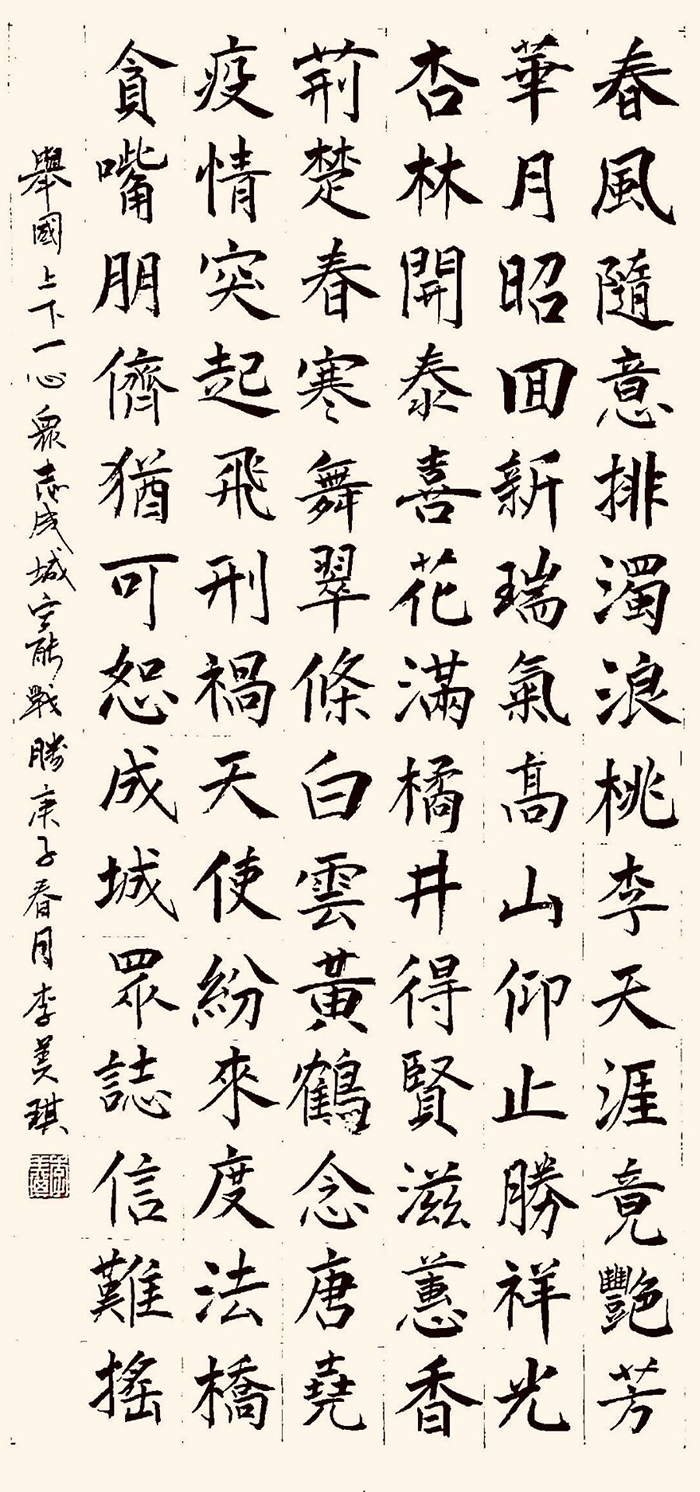 春風隨意排濁浪桃李天涯竟豔芳
華月昭回新瑞氣高山仰止勝祥光
杏林開泰喜花滿橘井得賢滋蕙香
荊楚春寒舞翠條白雲黃鶴念唐堯
疫情突起飛刑禍天使紛來度法橋
貪嘴朋儕猶可恕成城眾誌信難搖
舉國上下一心眾志成城定能戰勝庚子春月李美琪